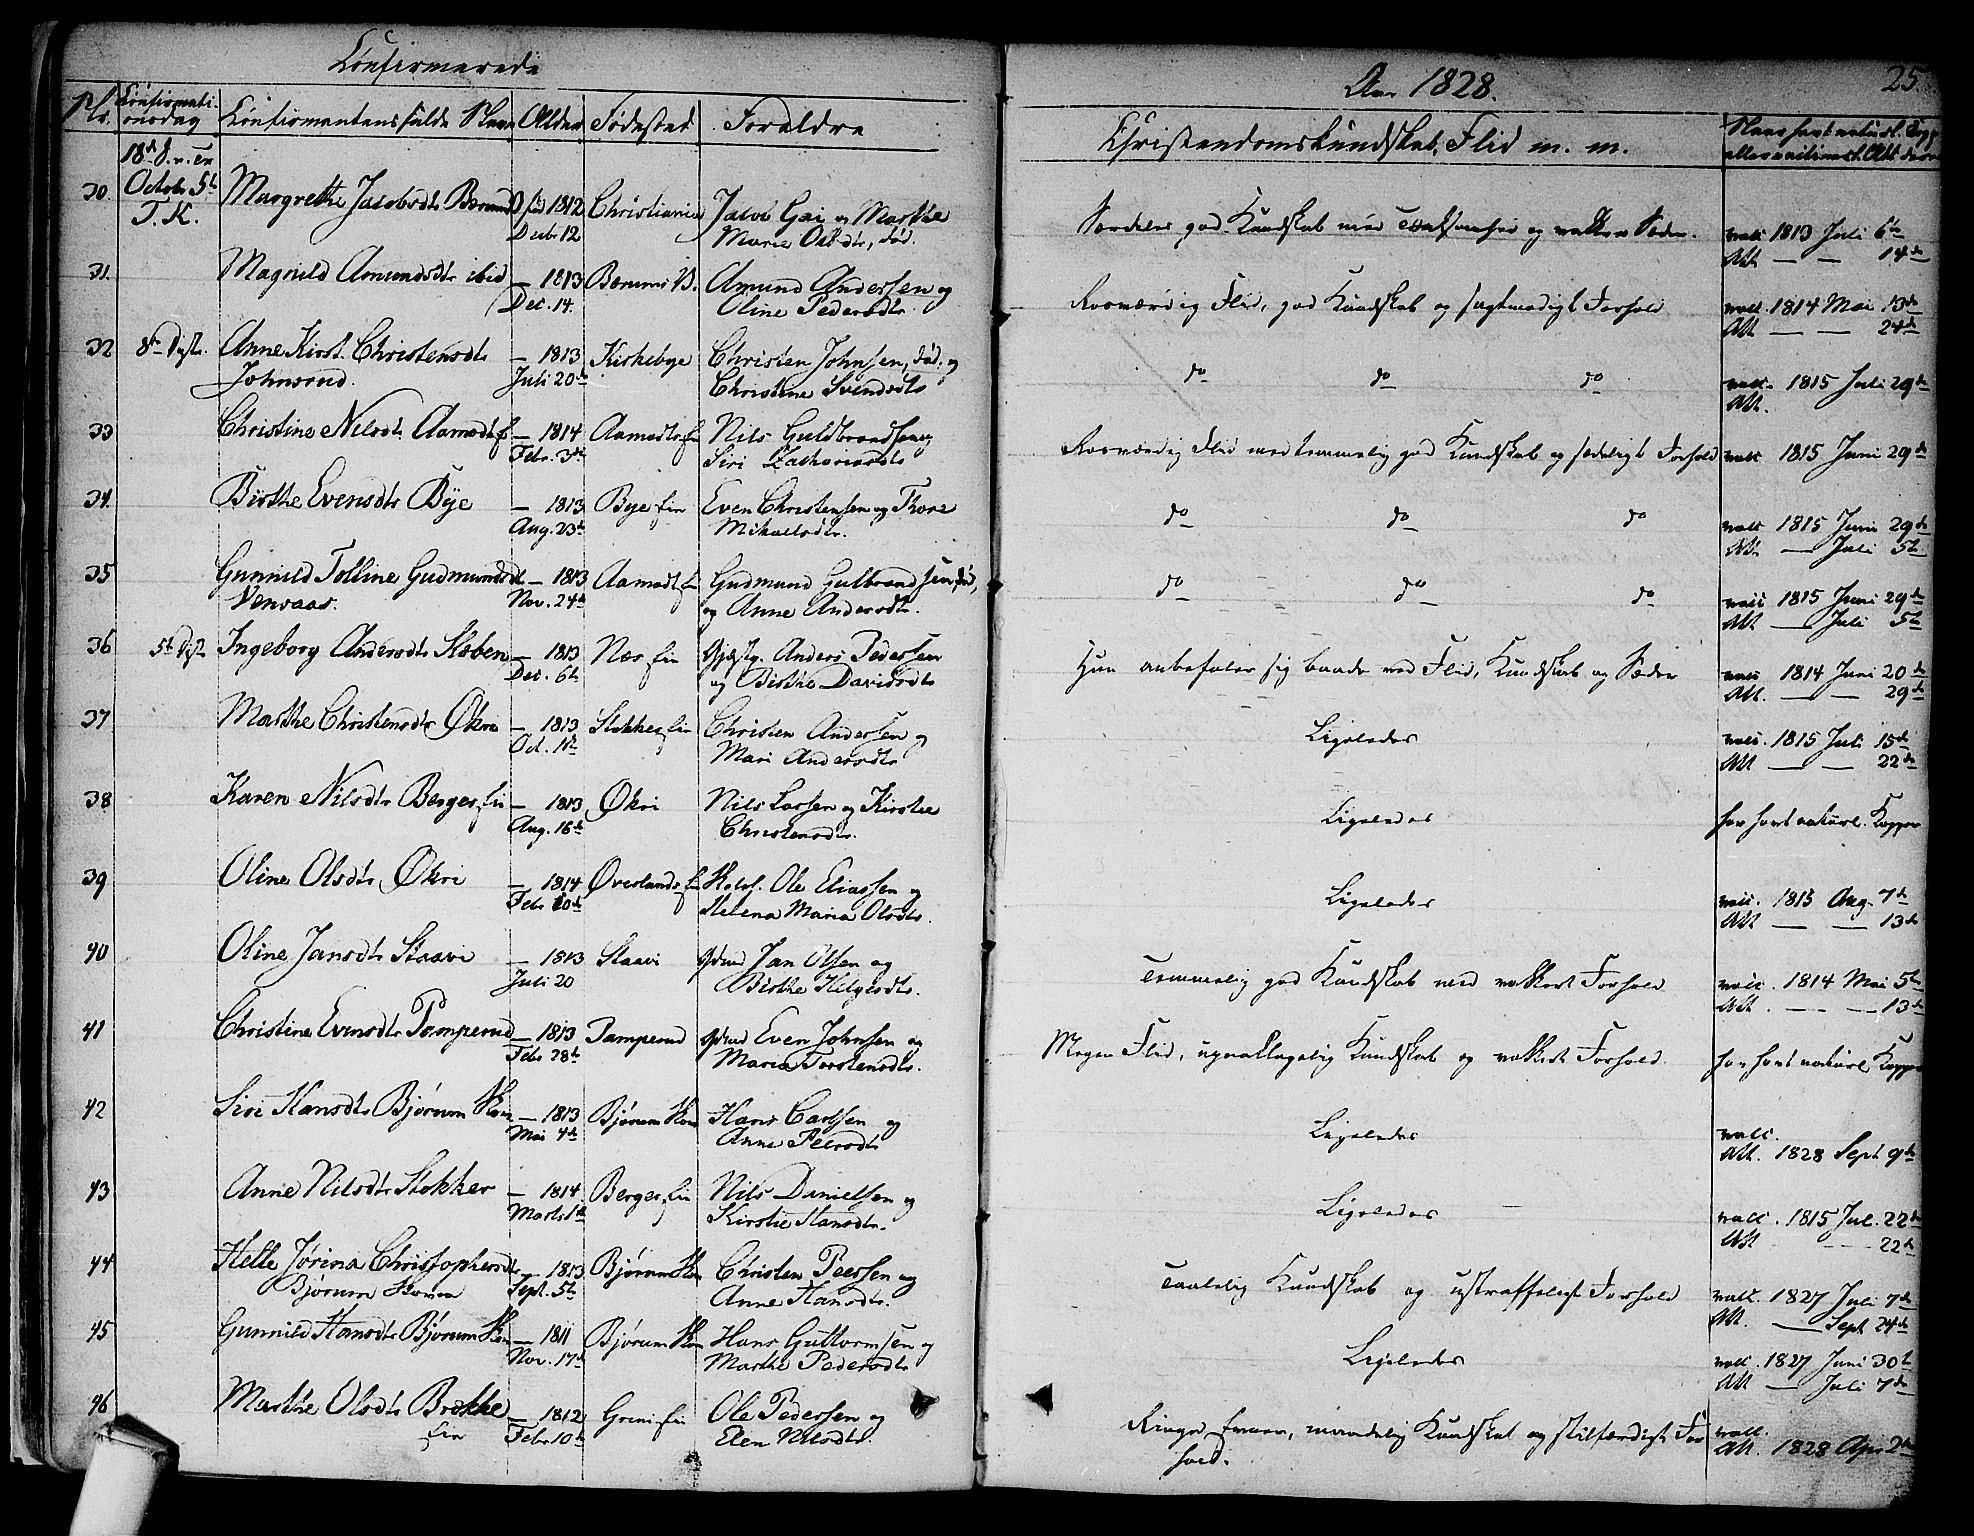 Confirmerede
Aar 1828.
25.
Nr. Confirmationsdag Confirmantens fulde Navn Alder Fødested Forældre
Christendomskundskab, Flid m. m.
18de S. e. Tr. Octobr 5te T. K.
30. Margrethe Jacobsdtr 1812 Decbr 12 Christiania Jacob Gai og Marthe
Marie Olsdtr, død.
Særdeles god Kundskab med og vakkre Sæder. vacc 1813 Juli 6te
Att — — 14de
31. Magnild Amundsdtr ibid — 1813 Dec. 14. Bærums V. Amund Andersen og
Oline Pedersdtr.
Rosværdig Flid, god Kundskab og sagtmodigt Forhold vacc. 1814 Mai 13de
Att — — 24de
32 8de Dist. Anne Kirst. Christensdtr — 1813 Juli 20de Kirkebye Christen Johnsen, død. og
Johnsrud. Christine Svendsdtr
do do do vacc. 1815 Juli 29de
Att.
33 Christine Nilsdtr Aamodt — 1814 Febr. 3de Aamodt Nils Guldbrandsen og
Siri Zachariasdtr
Rosværdig Flid med temmelig god Kundskab og sædeligt Forhold vacc 1815 Juni 29de
34. Birthe Evensdtr Bye — 1813 Aug. 23de Bye Even Christensen og Thore
Mikkelsdtr.
do do do vacc 1815 Juni 29de
Att. — Juli 5te
35 Gunnild Tolline Gudmundsdt — 1813 Nov. 24de Aamodt Gudmund Gulbrandsen, død,
og Anne Andersdtr.
do do do vacc 1815 Juni 29de
Att — Juli 5te
36 5te Dist. Ingeborg Andersdtr Stæben — 1813 Dec. 6te Næs Gjæstg. Anders Pedersen
og Birthe Davidsdtr
Hun anbefaler sig baade ved Flid, Kundskab og Sæder vacc 1814 Juni 20de
Att. — — 29de
37 Marthe Christensdtr Økri — 1813 Oct. 1ste Stokker Christen Andersen og
Mari Andersdtr
Ligeledes vacc. 1815 Juli 15de
Att — — 22de
38 Karen Nilsdtr Berger — 1813 Aug. 16de Økri Nils Larsen og Kirstie
Christensdtr.
Ligeledes har havt naturl. Kopper
39 Oline Olsdtr Økri — 1814 Febr 10de Øverlands Ole Eliassen og
Helena Maria Olsdtr.
Ligeledes vacc. 1815 Aug. 7de
Att — — 13de
40 Oline Jansdtr Staavi — 1813 Juli 20 Staavi Gdmd Jan Olsen og
Birthe Helgesdtr.
Temmelig god Kundskab med vakkert Forhold vacc. 1814 Mai 5te
Att. — — 13de
41 Christine Evensdtr Pamperud — 1813 Febr 28de Pamperud Gdmd Even Johnsen og
Maria Torstensdtr.
Megen Flid, upaaklagelig Kundskab og vakkert Forhold. har havt naturl Kopper
42 Siri Hansdtr Bjørum — 1813 Mai 4de Bjørum Hans Carlsen og
Anne Peersdtr
Ligeledes vacc.
Att. 1828 Sept 9de
43 Anne Nilsdtr Stokker — 1814 Marts 1ste Berger Nils Danielsen og
Kirstie Hansdtr.
Ligeledes vacc. 1815 Jul. 22de
Att 22de
44 Helle Jørina Christophersdtr — 1813 Sept. 5te Bjørum Christen Peersen og
Bjørum Anne Hansdtr.
Taalelig Kundskab og ustraffeligt Forhold vacc. 1827 Juli 7de
Att. — Sept 24de
45 Gunnild Hansdtr Bjørum — 1811 Nov. 17de Bjørum Hans Guttormsen og
Marthe Pedersdtr
Ligeledes vacc. 1827 Juni 30te
Att — Juli 7de
46 Marthe Olsdtr Brække — 1812 Febr 10de Grini Ole Pedersen og
Elen Nilsdtr.
Ringe Evner, maadelig Kundskab og stilfærdigt For
hold. vacc.
Att. 1828 Apr 2de